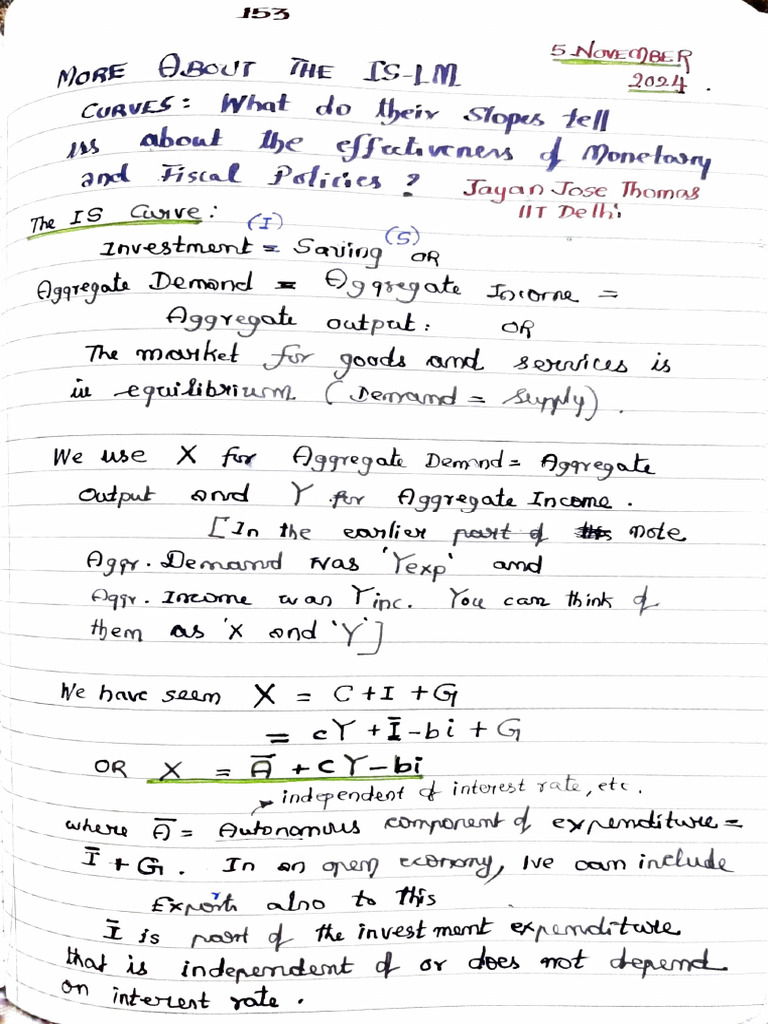 153
5 NOVEMBER
2024.
MORE ABOUT THE IS-LM
CURVES: What do their slopes tell
us about the effectiveness of Monetary
and Fiscal Policies?
Jayan Jose Thomas
IIT Delhi
The IS Curve:
(I) (S)
Investment = Saving OR
Aggregate Demand = Aggregate Income =
Aggregate output: OR
The market for goods and services is
in equilibrium (Demand = Supply).
We use X for Aggregate Demnd = Aggregate
Output and Y for Aggregate Income.
[In the earlier part of note
Aggr. Demand was 'Yexp' and
Aggr. Income was Yinc. You can think of
them as 'X and 'Y']
We have seen X = C + I + G
= cY + Ī - bi + G
OR X = Ā + cY - bi
independent of interest rate, etc.
where Ā = Autonomous component of expenditure =
Ī + G. In an open economy, we can include
Exports also to this
Ī is part of the investment expenditure
that is independent of or does not depend
on interest rate.